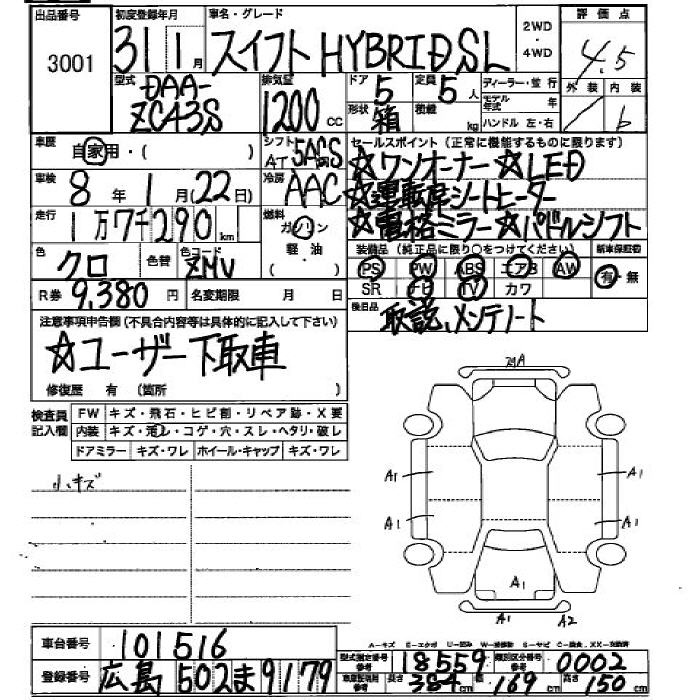 出品番号 初度登録年月 車名・グレード 評価点
3001 31 1月 スイフト HYBRID,SL 2WD ・ 4WD 4.5
型式 DAA-ZC43S 排気量 1200 cc ドア 5 定員 5 人 ディーラー・並行 外装 内装
形状 箱 積載 kg モデル年式 年 b
ハンドル 左・右
車歴 自家用・( ) シフト AT 5AGS セールスポイント (正常に機能するものに限ります)
☆ワンオーナー ☆LED
車検 8年 1月(22日) 冷房 AAC ☆運転席シートヒーター
走行 1万7千290km 燃料 ガソリン 軽・油 ( ) ☆電格ミラー ☆パドルシフト
色 クロ 色替 色コード ZMV 装備品 (純正品に限り○をつけてください) 新車保証書
PS PW ABS エアB AW 有・無
R券 9,380円 名変期限 月 日 SR ナビ TV カワ
注意事項申告欄 (不具合内容等は具体的に記入して下さい) 後日品 取説、メンテノート
☆ユーザー下取車
修復歴 有 (箇所 )
検査員記入欄 FW キズ・飛石・ヒビ割・リペア跡・X要
内装 キズ・汚レ・コゲ・穴・スレ・ヘタリ・破レ
ドアミラー キズ・ワレ ホイール・キャップ キズ・ワレ
小キズ
A1 A1
A1 A1
A1
A1 A2
車台番号 101516
型式指定番号 参考 18559 類別区分番号 参考 0002
登録番号 広島 502 ま 9179
長さ 384cm 幅 169cm 高さ 150cm